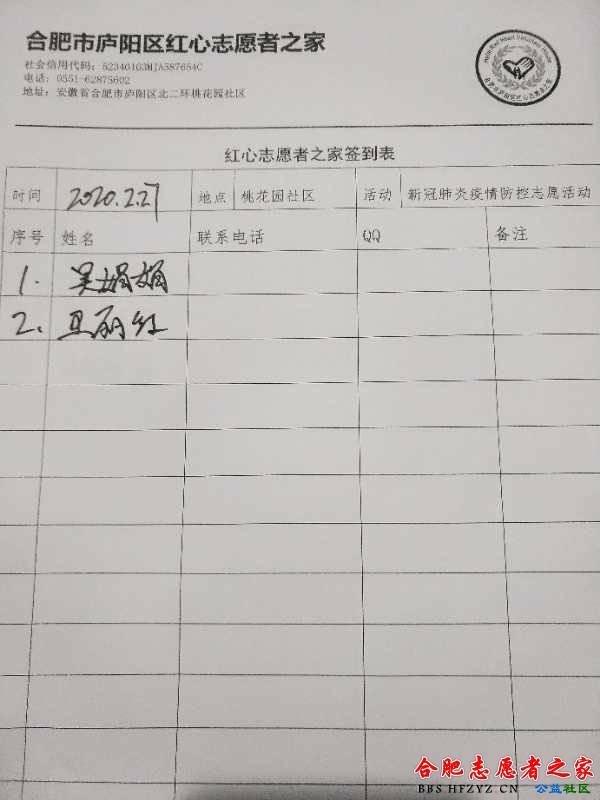 合肥市庐阳区红心志愿者之家
社会信用代码：52340103MJA587654C
电话：0551-62875602
地址：安徽省合肥市庐阳区北二环桃花园社区
Hefei Red Heart Volunteers' Home
合肥市庐阳区红心志愿者之家
红心志愿者之家签到表
时间 2020.2.27 地点 桃花园社区 活动 新冠肺炎疫情防控志愿活动
序号 姓名 联系电话 QQ 备注
1. 吴娟娟
2. 丽红
合肥志愿者之家
BBS HFZYZ CN 公益社区